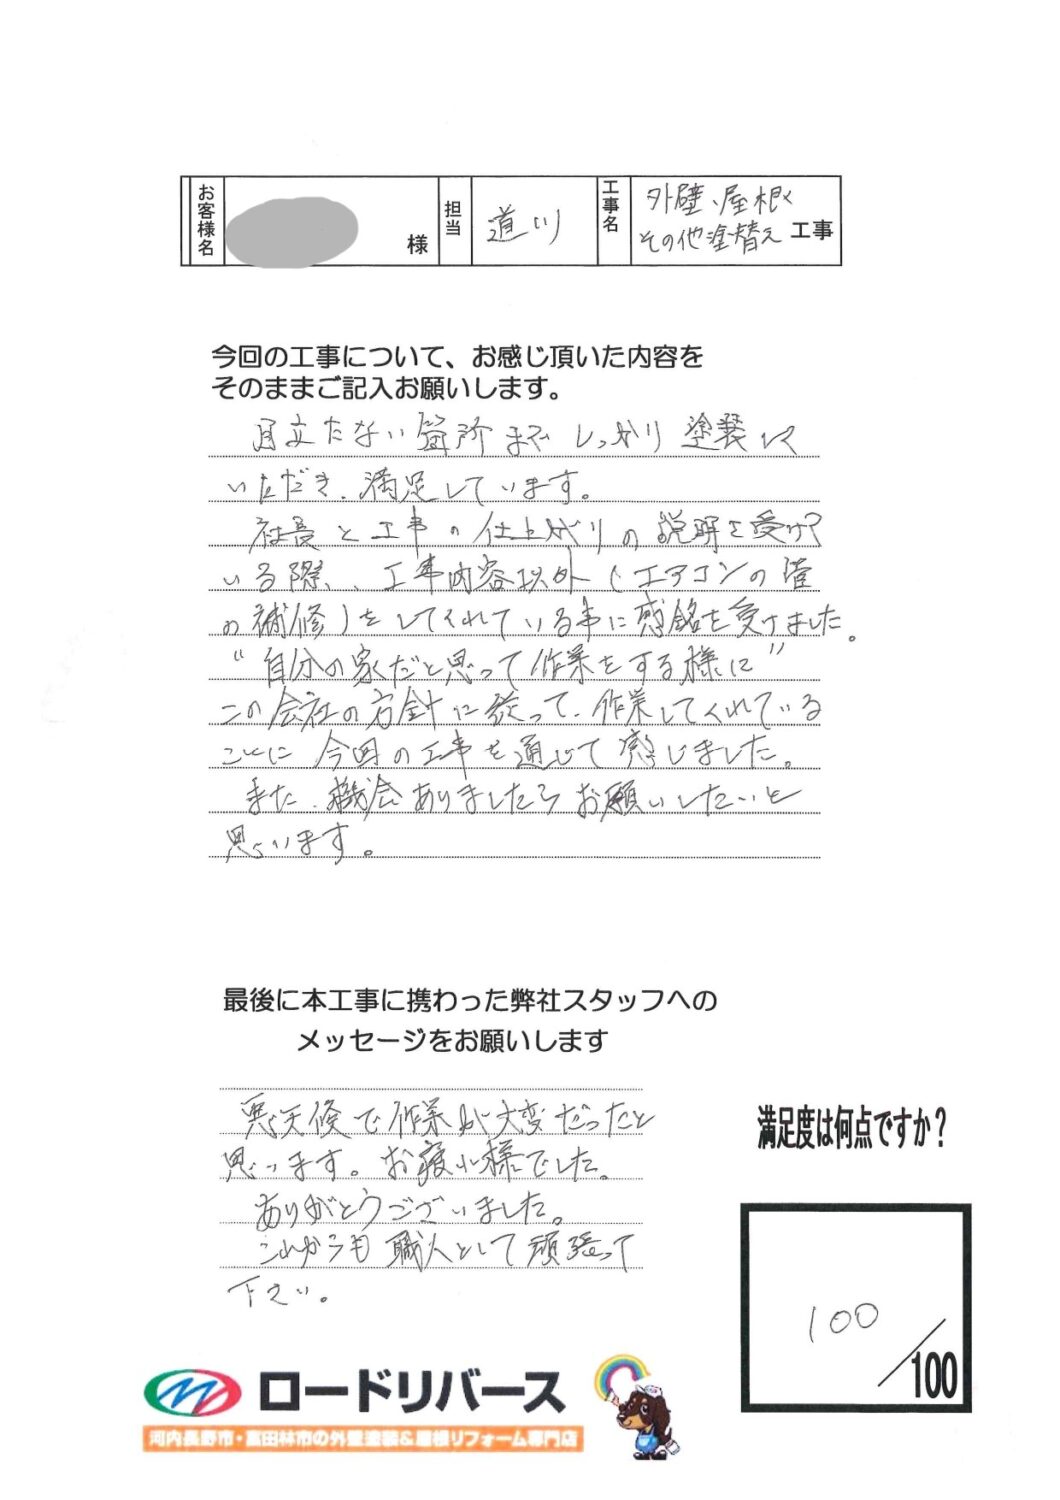 お客様名 様 担当 道川 工事名 外壁、屋根
その他塗替え 工事
今回の工事について、お感じ頂いた内容を
そのままご記入お願いします。
目立たない箇所までしっかり塗装して
いただき、満足しています。
社長と工事の仕上がりの説明を受けて
いる際、、工事内容以外(エアコンの管
の補修)をしてくれている事に感銘を受けました。
"自分の家だと思って作業をする様に"
この会社の方針に従って、作業してくれている
ことに今回の工事を通じて感じました。
また、機会ありましたらお願いしたいと
思います。
最後に本工事に携わった弊社スタッフへの
メッセージをお願いします
悪天候で作業が大変だったと
思います。お疲れ様でした。
ありがとうございました。
これからも職人として頑張って
下さい。
満足度は何点ですか?
100
/100
ロードリバース
河内長野市・富田林市の外壁塗装&屋根リフォーム専門店